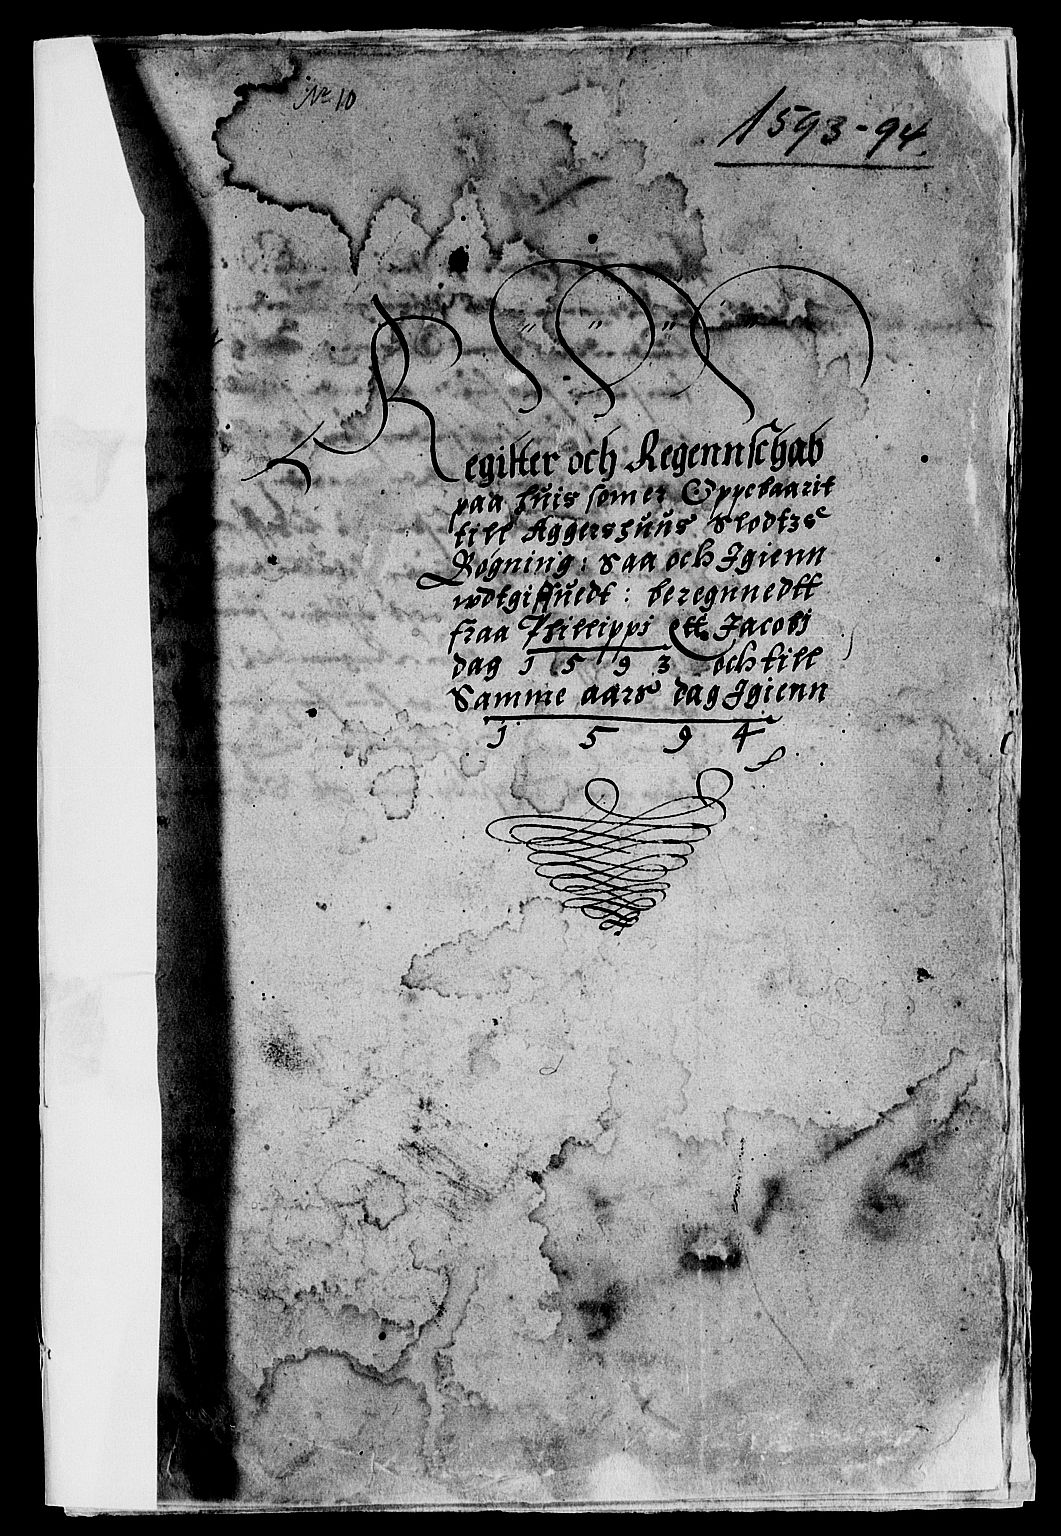 No 10
1593-94.
Register och Regennschab
paa huis som er Oppebaarit
till Aggershuus Slodtzs
Rögning: Saa och Igienn
wdtgiffuedt: beregnnedtt
fraa Phillippi Ett Jacobj
dag 1593 och till
Samme aars dag Igienn
1594